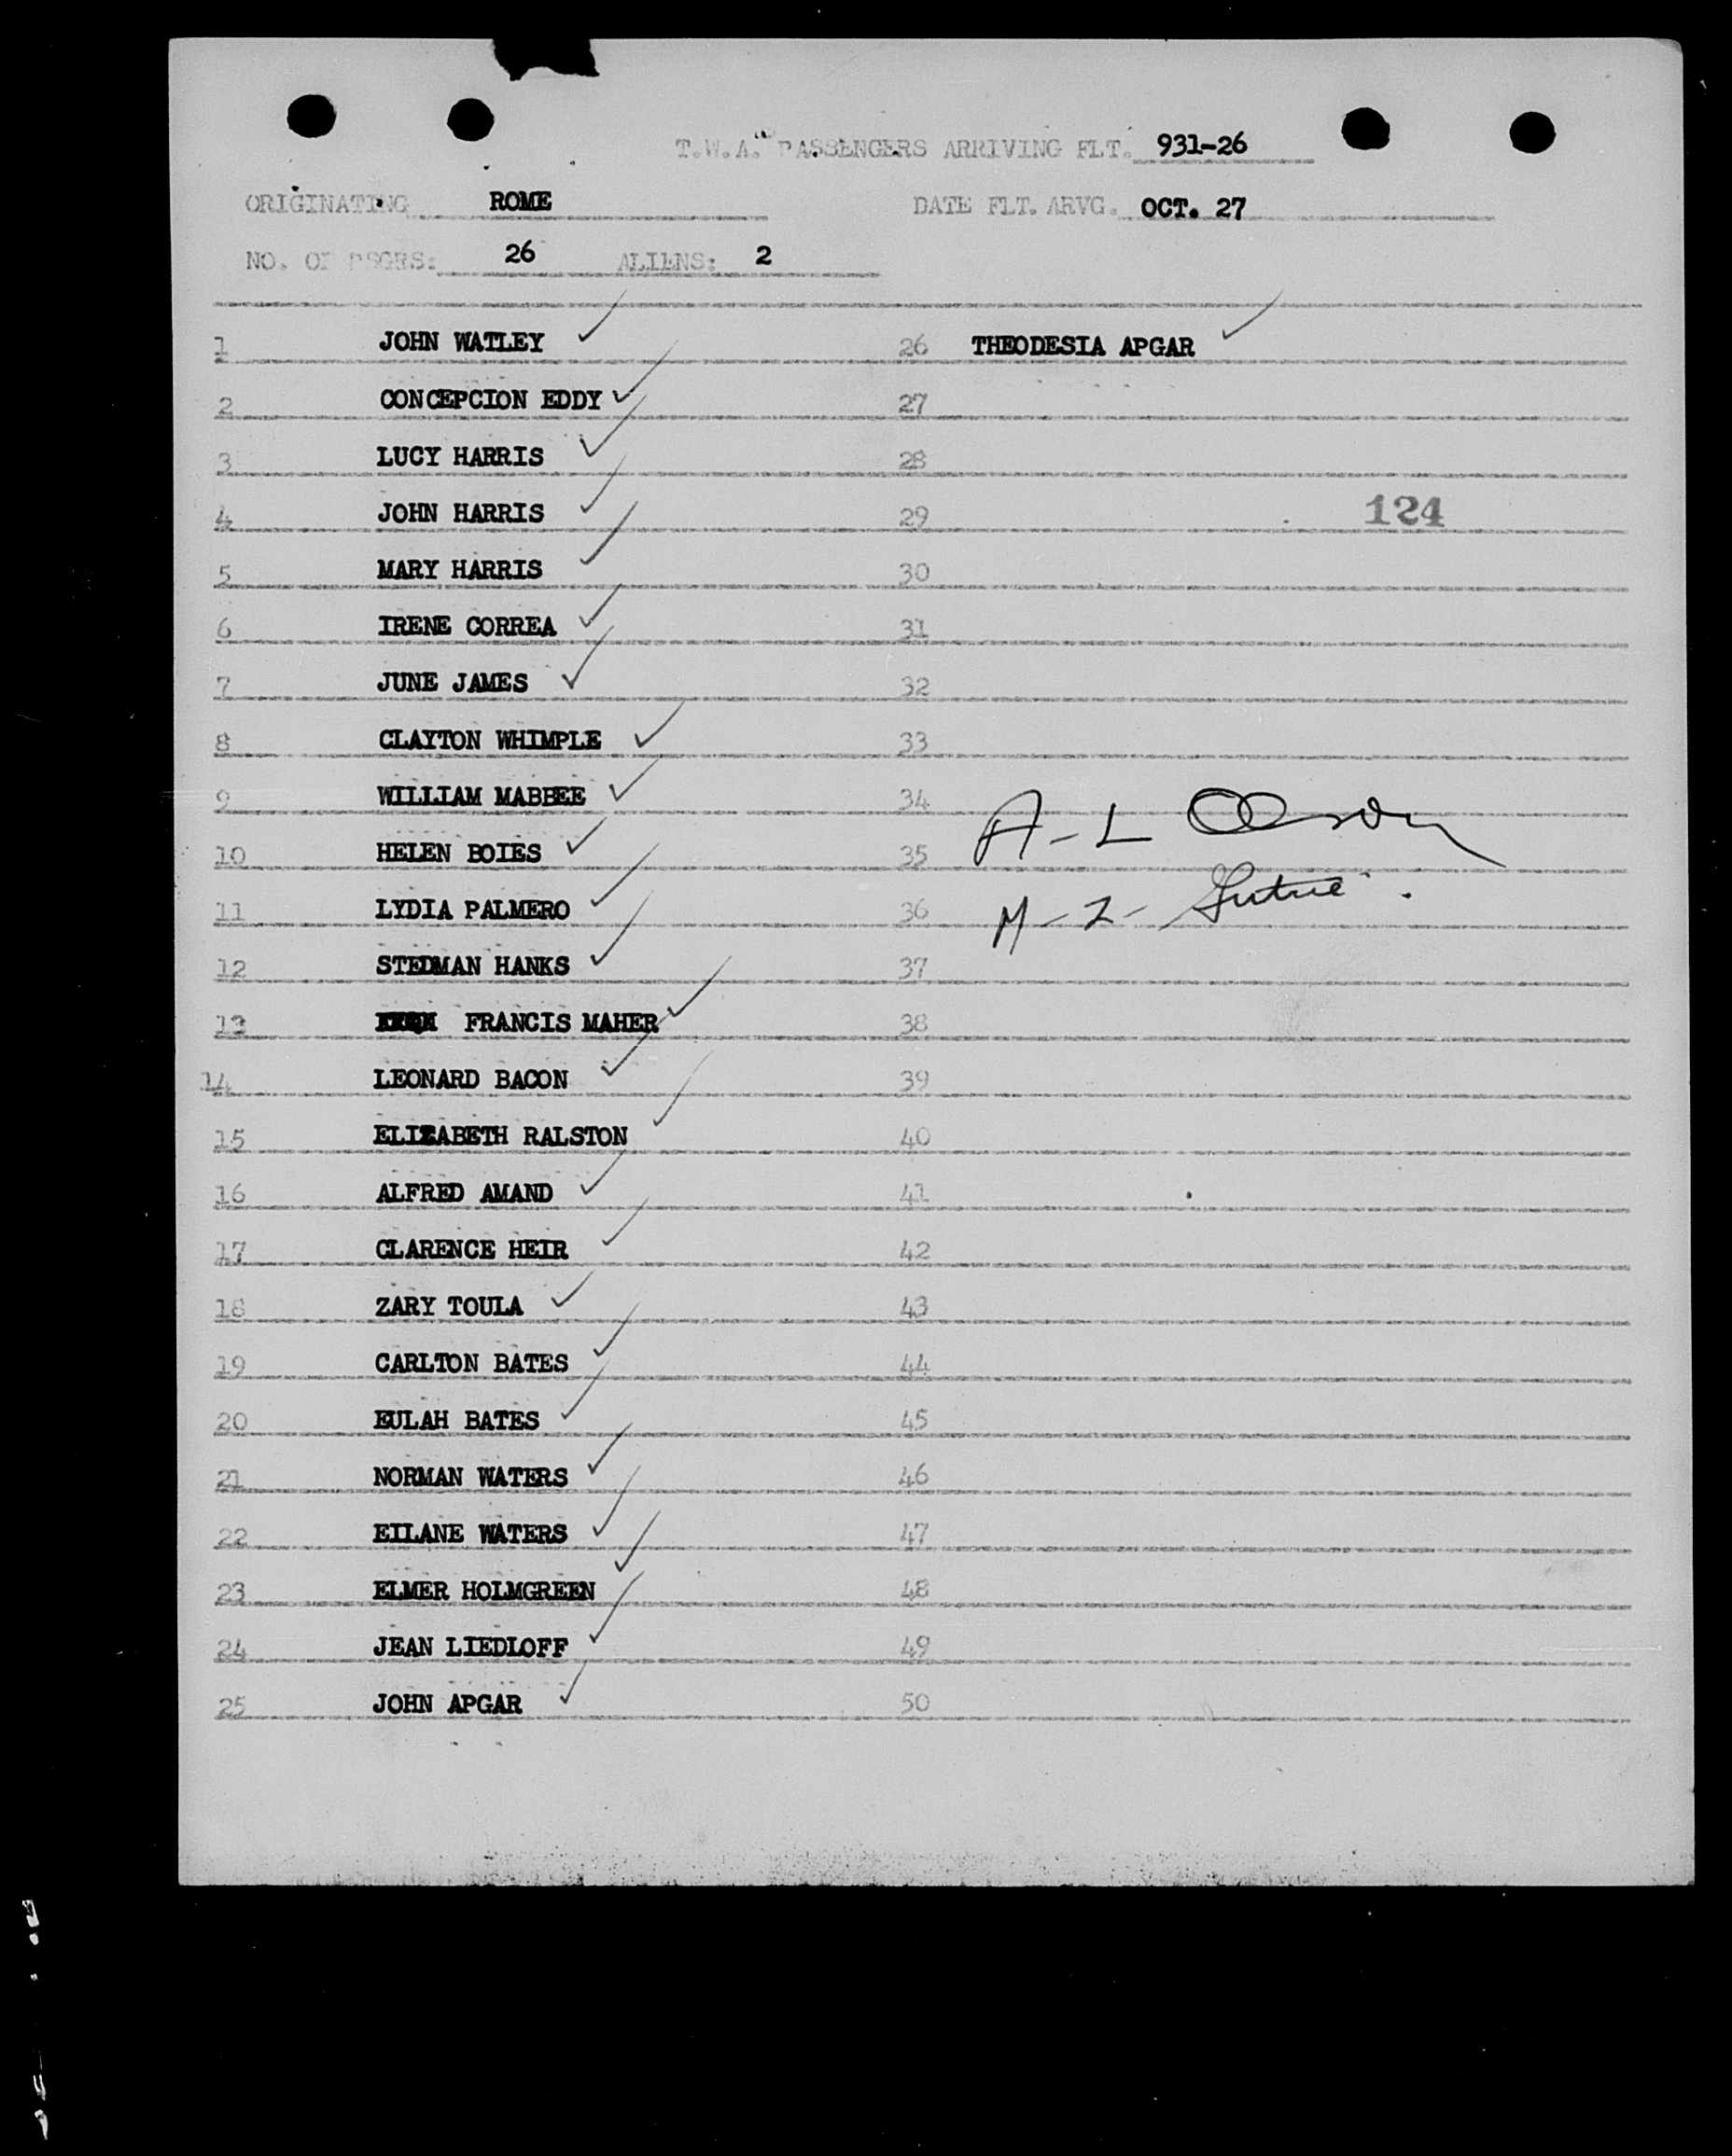 T.W.A. PASSENGERS ARRIVING FLT. 931-26
ORIGINATING ROME DATE FLT. ARVG. OCT. 27
NO. OF PSGRS: 26 ALIENS: 2
1 JOHN WATLEY 26 THEODESIA APGAR
2 CONCEPCION EDDY 27
3 LUCY HARRIS 28
4 JOHN HARRIS 29 124
5 MARY HARRIS 30
6 IRENE CORREA 31
7 JUNE JAMES 32
8 CLAYTON WHIMPLE 33
9 WILLIAM MABBEE 34 A-L Olson
10 HELEN BOIES 35
11 LYDIA PALMERO 36 M-Z-
12 STEDMAN HANKS 37
13 FRANCIS MAHER 38
14 LEONARD BACON 39
15 ELIZABETH RALSTON 40
16 ALFRED AMAND 41
17 CLARENCE HEIR 42
18 ZARY TOULA 43
19 CARLTON BATES 44
20 EULAH BATES 45
21 NORMAN WATERS 46
22 EILANE WATERS 47
23 ELMER HOLMGREEN 48
24 JEAN LIEDLOFF 49
25 JOHN APGAR 50